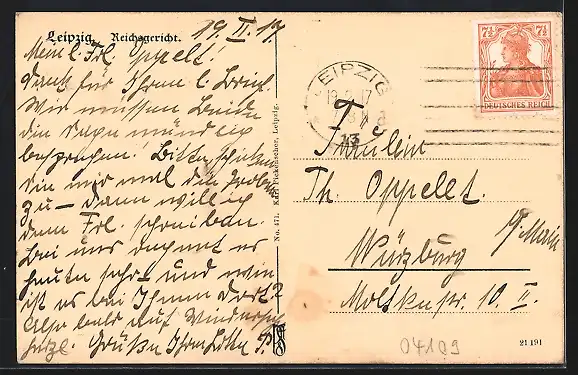 Leipzig. Reichsgericht.
19. II. 17
Mein l. Frl. Oppelt!
Dank für Ihren l. Brief.
Wir müssen beide
die Sage mündlich
besprechen! Bitte schicken
Sie mir mal die Probe
zu – dann will ich
dem Frl. schreiben.
Bei uns regnet es
heute sehr – und wie
ist es bei Ihnen dort?
Also bald auf Wiedersehn
herzl. Grüße Ihre
No. 471. Karl Pickenscher, Leipzig.
LEIPZIG
19.2.17
13
7½ 7½
DEUTSCHES REICH
Fräulein
Th. Oppelt.
Würzburg
a. Main
Moltkestr. 10. II.
04109
21 191